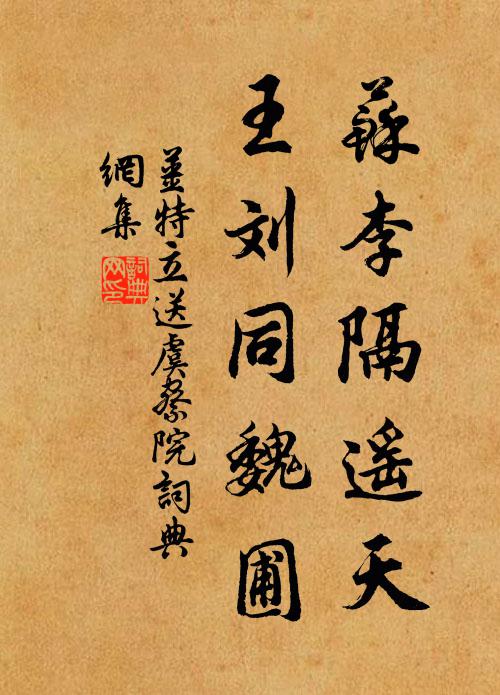 蘇李隔遥天
王刘同魏圃
姜特立送虞察院詞典
網集
詞典網印